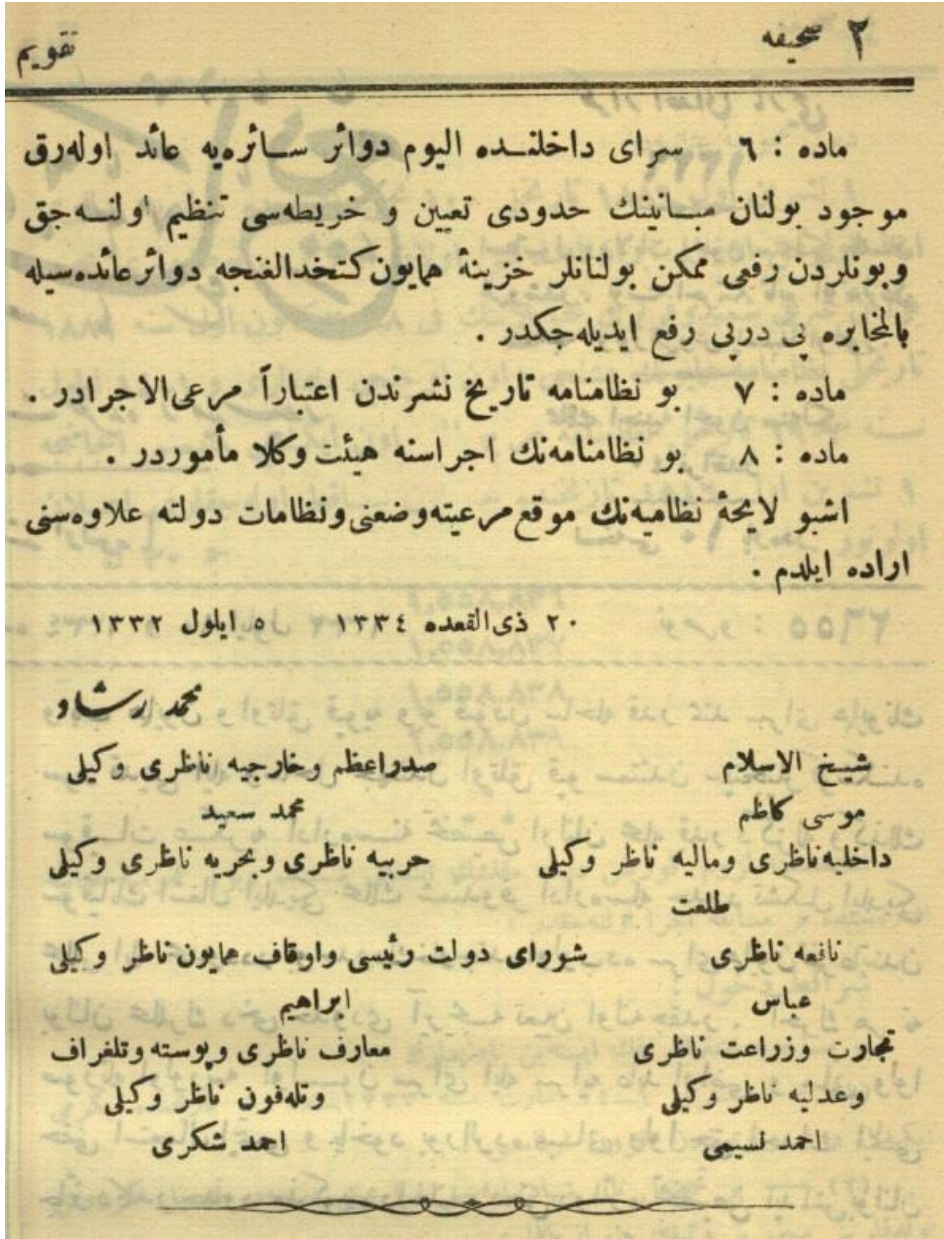 ٢ صحیفه تقویم
ماده : ٦ سرای داخلنـده الیوم دوائر سـائره‌یه عائد اوله‌رق
موجود بولنان مبـانینك حدودی تعیین و خریطه‌سی تنظیم اولنـه‌جق
وبونلردن رفعی ممكن بولنانلر خزینۀ همایون كتخدالغنجه دوائر عائده‌سیله
بالمخابره پی درپی رفع ایدیله‌جكدر .
ماده : ٧ بو نظامنامه تاریخ نشرندن اعتباراً مرعی‌الاجرادر .
ماده : ٨ بو نظامنامه‌نك اجراسنه هیئت وكلا مأموردر .
اشبو لایحۀ نظامیه‌نك موقع مرعیته وضعنی ونظامات دولته علاوه‌سنی
اراده ایلدم .
٢٠ ذی‌القعده ١٣٣٤ ٥ ایلول ١٣٣٢
محمد رشاد
شیـخ الاسلام صدراعظم وخارجیه ناظری وكیلی
موسی كاظم محمد سعید
داخلیه ناظری ومالیه ناظر وكیلی حربیه ناظری وبحریه ناظری وكیلی
طلعت
نافعه ناظری شورای دولت رئیسی واوقاف همایون ناظر وكیلی
عباس ابراهیم
تجارت وزراعت ناظری معارف ناظری وپوسته وتلغراف
وعدلیه ناظر وكیلی وتله‌فون ناظر وكیلی
احمد نسیمی احمد شكری